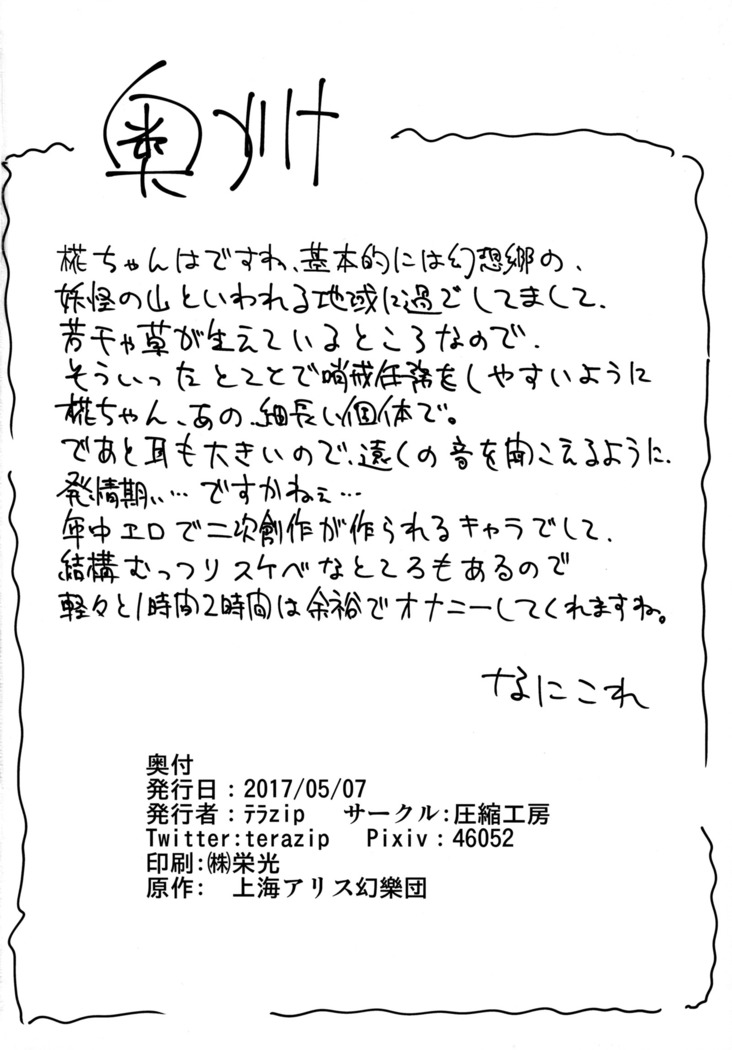 奥付
椛ちゃんはですね、基本的には幻想郷の、
妖怪の山といわれる地域に過ごしてまして、
若干や草が生えているところなので、
そういったところで哨戒任務をしやすいように
椛ちゃん、あの、細長い個体で。
であと耳も大きいので、遠くの音を聞こえるように、
発情期ぃ…ですかねぇ…
年中エロで二次創作が作られるキャラでして、
結構むっつりスケベなところもあるので
軽々と1時間2時間は余裕でオナニーしてくれますね。
なにこれ
奥付
発行日：2017/05/07
発行者：ﾃﾗzip　サークル:圧縮工房
Twitter:terazip　Pixiv：46052
印刷:㈱栄光
原作:　上海アリス幻樂団